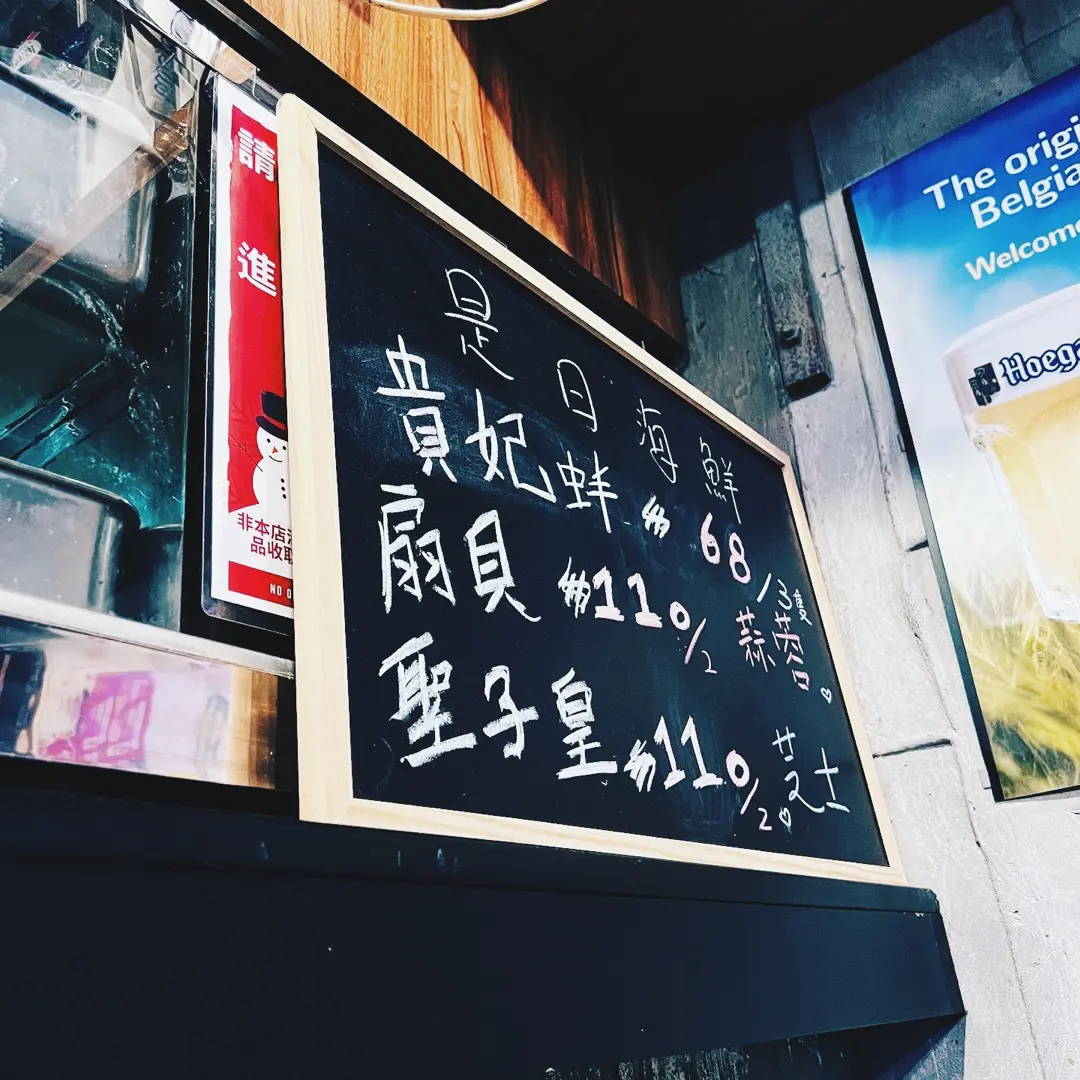 請進
非本店
品收
NO
是日海鮮
貴妃蚌 $68/3隻
扇貝 $110/2 蒜蓉
聖子皇 $110/2 芝士
The origi
Belgia
Welcome
Hoega